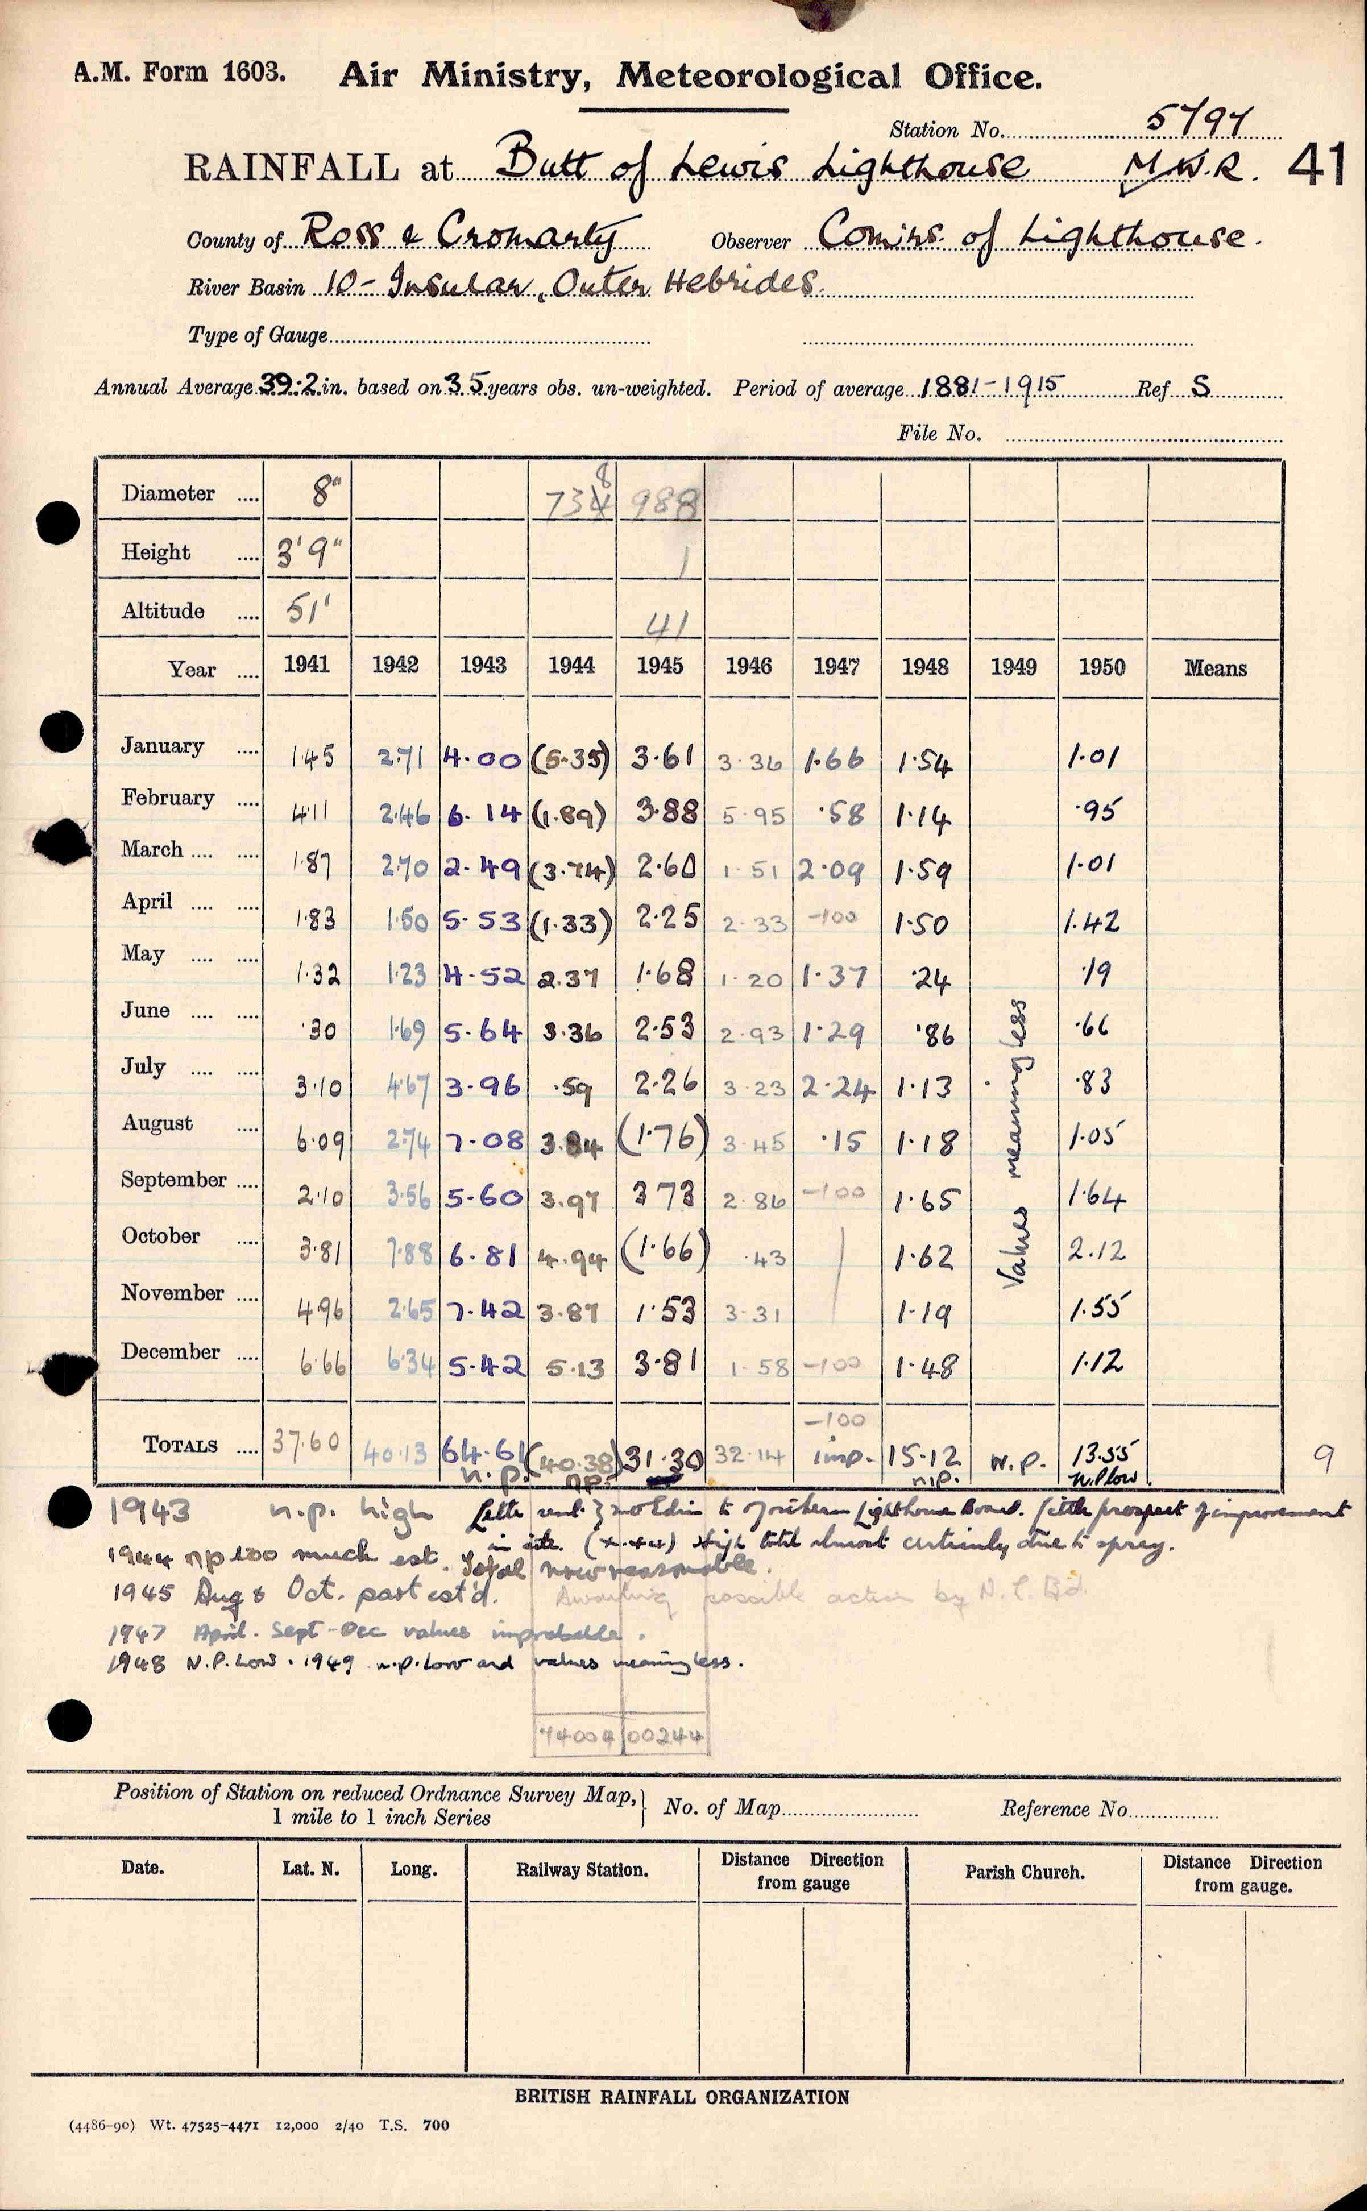 A.M. Form 1603. Air Ministry, Meteorological Office.
Station No. 5797
RAINFALL at Butt of Lewis Lighthouse M.W.R. 41
County of Ross & Cromarty Observer Comirs. of Lighthouse.
River Basin 10 - Insular, Outer Hebrides.
Type of Gauge
Annual Average 39.2 in. based on 35 years obs. un-weighted. Period of average 1881-1915 Ref S
File No.
Diameter .... 8" 7348 988
Height .... 3' 9" 1
Altitude .... 51' 41
Year .... 1941 1942 1943 1944 1945 1946 1947 1948 1949 1950 Means
January .... 1.45 2.71 4.00 (5.35) 3.61 3.36 1.66 1.54 1.01
February .... 4.11 2.46 6.14 (1.89) 3.88 5.95 .58 1.14 .95
March .... .... 1.87 2.70 2.49 (3.74) 2.60 1.51 2.09 1.59 1.01
April .... .... 1.83 1.50 5.53 (1.33) 2.25 2.33 -100 1.50 1.42
May .... .... 1.32 1.23 4.52 2.37 1.68 1.20 1.37 .24 .19
June .... .... .30 1.69 5.64 3.36 2.53 2.93 1.29 .86 .66
July .... .... 3.10 4.67 3.96 .59 2.26 3.23 2.24 1.13 .83
August .... 6.09 2.74 7.08 3.84 (1.76) 3.45 .15 1.18 1.05
September .... 2.10 3.56 5.60 3.97 3.73 2.86 -100 1.65 1.64
October .... 3.81 7.88 6.81 4.94 (1.66) .43 1.62 2.12
November .... 4.96 2.65 7.42 3.87 1.53 3.31 1.19 1.55
December .... 6.66 6.34 5.42 5.13 3.81 1.58 -100 1.48 1.12
Values meaningless
-100
TOTALS .... 37.60 40.13 64.61 (40.38) 31.30 32.14 imp. 15.12 N.P. 13.55 9
n.p. n.p. n.p. n.P low
1943 n.p. high Letter sent to Northern Lighthouse Board. little prospect of improvement
in site. High total almost certainly due to spray.
1944 np too much est. Total now reasonable.
1945 Aug & Oct. part est'd. Awaiting possible action by N.L. Bd.
1947 April. Sept-Dec values improbable.
1948 N.P. Low. 1949 n.p. low and values meaningless.
94004 00244
Position of Station on reduced Ordnance Survey Map,
1 mile to 1 inch Series
No. of Map Reference No.
Date. Lat. N. Long. Railway Station. Distance Direction from gauge Parish Church. Distance Direction from gauge.
BRITISH RAINFALL ORGANIZATION
(4486-90) Wt. 47525-4471 12,000 2/40 T.S. 700